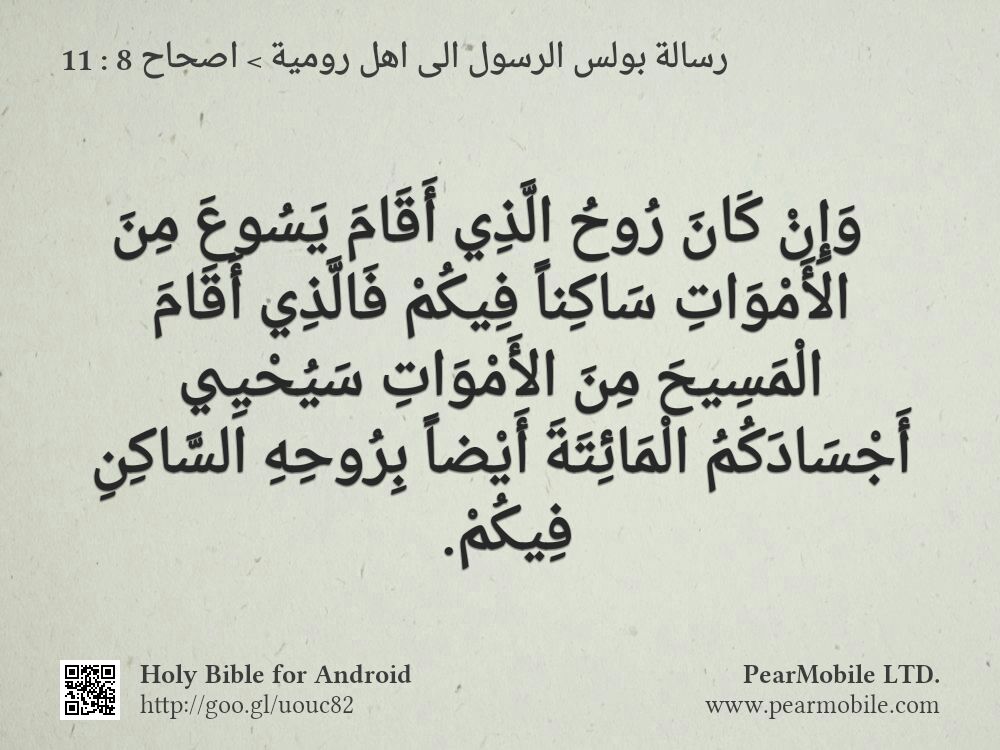 رسالة بولس الرسول الى اهل رومية > اصحاح 8 : 11
وَإِنْ كَانَ رُوحُ الَّذِي أَقَامَ يَسُوعَ مِنَ
الأَمْوَاتِ سَاكِناً فِيكُمْ فَالَّذِي أَقَامَ
الْمَسِيحَ مِنَ الأَمْوَاتِ سَيُحْيِي
أَجْسَادَكُمُ الْمَائِتَةَ أَيْضاً بِرُوحِهِ السَّاكِنِ
فِيكُمْ.
Holy Bible for Android
http://goo.gl/uouc82
PearMobile LTD.
www.pearmobile.com